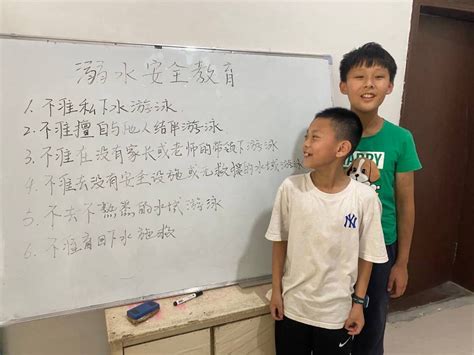 溺水安全教育
1. 不准私下水游泳
2. 不准擅自与他人结伴游泳
3. 不准在没有家长或老师的带领下游泳
4. 不准去没有安全设施或无救援的水域游泳
5. 不去不熟悉的水域游泳
6. 不准盲目下水施救
NY
PPY